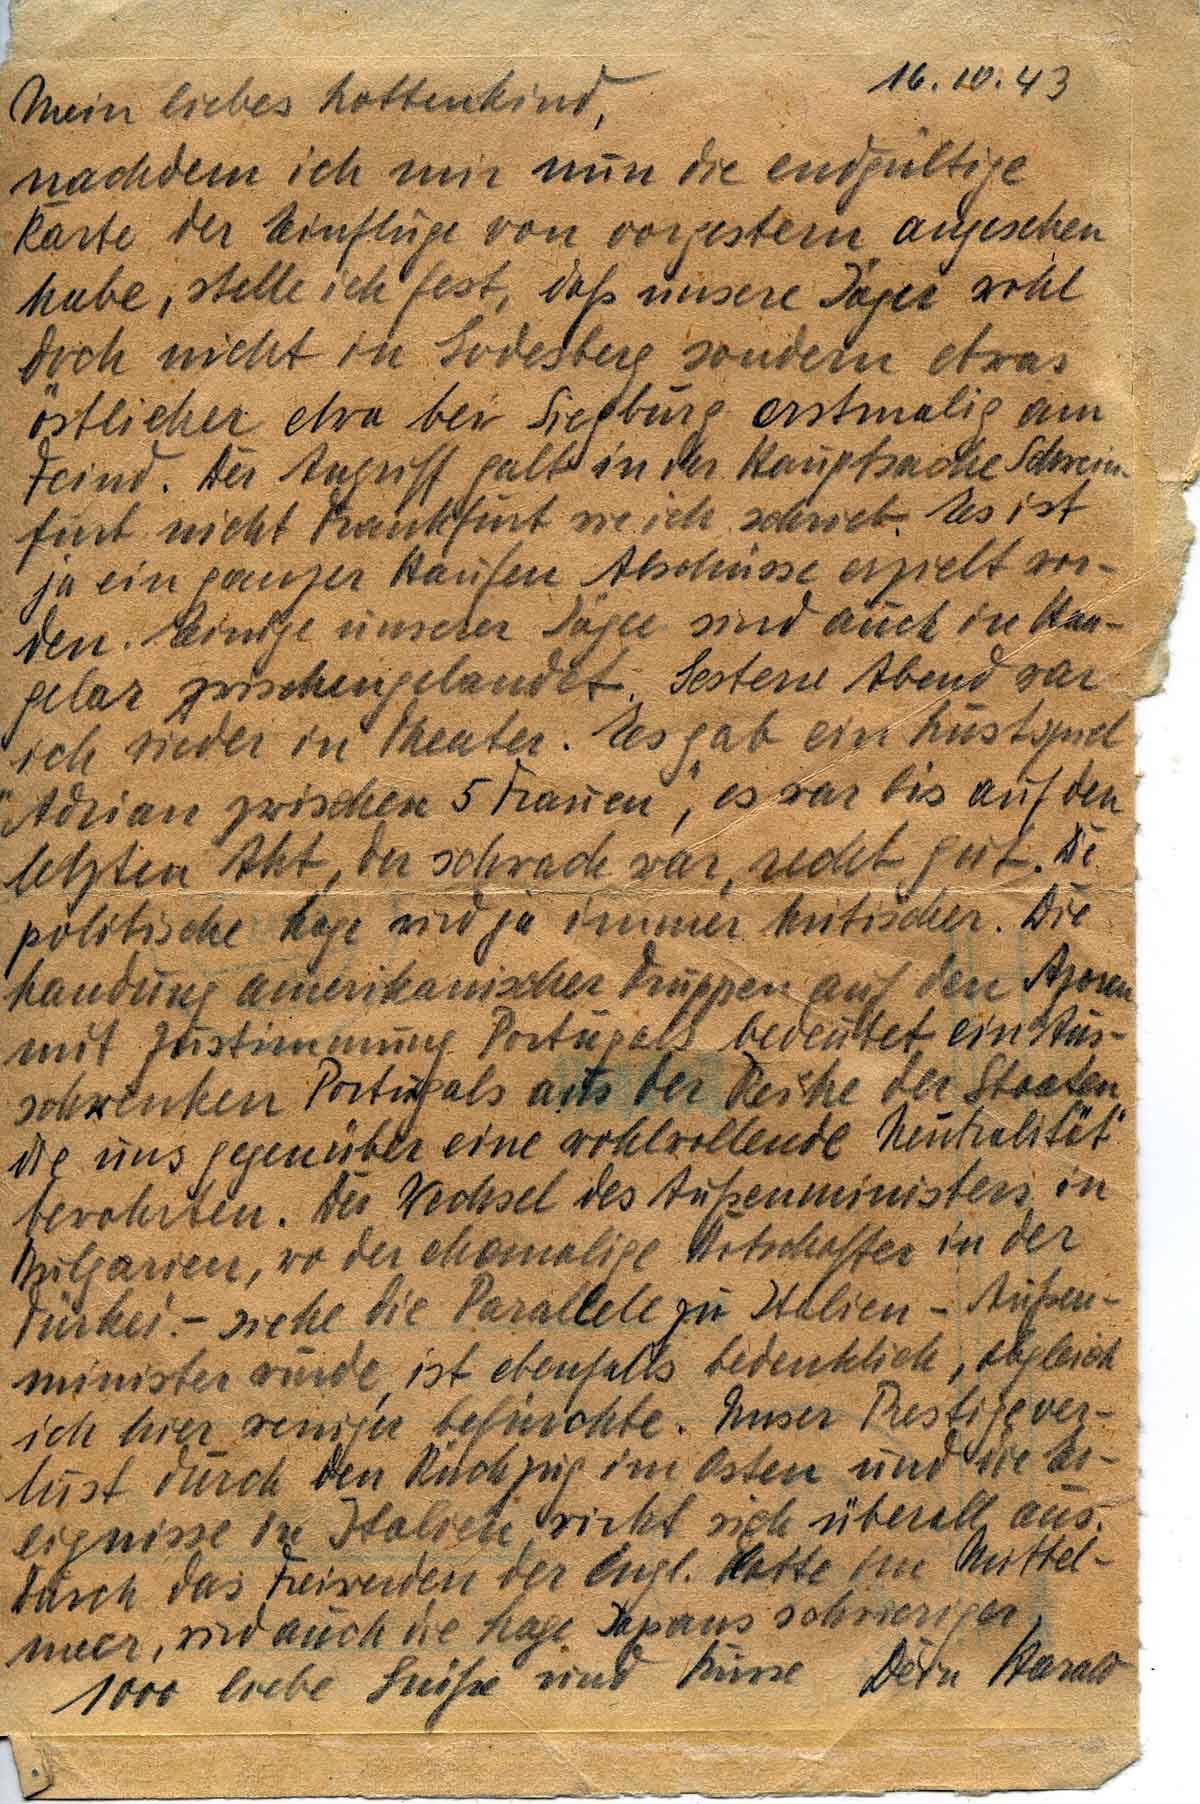 16.10.43
Mein liebes Lottenkind,
nachdem ich mir nun die endgültige
Karte der Einflüge von vorgestern angesehen
habe, stelle ich fest, daß unsere Jäger wohl
doch nicht in Godesberg sondern etwas
östlicher etwa bei Siegburg erstmalig am
Feind. Der Angriff galt in der Hauptsache Schwein-
furt nicht Frankfurt wie ich schrieb. Es ist
ja ein ganzer Haufen Abschüsse erzielt wor-
den. Einige unserer Jäger sind auch in Han-
gelar zwischengelandet. Gestern Abend war
ich wieder in Theater. Es gab ein Lustspiel
"Adrian zwischen 5 Frauen", es war bis auf den
letzten Akt, der schwach war, recht gut. Die
politische Lage wird ja immer kritischer. Die
Landung amerikanischer Truppen auf den Azoren
mit Zustimmung Portugals bedeutet ein Aus-
schwenken Portugals aus der Reihe der Staaten
die uns gegenüber eine wohlwollende Neutralität
bewahrten. Der Wechsel des Außenministers in
Bulgarien, wo der ehemalige Botschafter in der
Türkei – siehe die Parallele zu Italien – Außen-
minister wurde, ist ebenfalls bedenklich, obgleich
ich hier weniger befürchte. Unser Prestigever-
lust durch den Rückzug im Osten und die Er-
eignisse in Italien wirkt sich überall aus.
Durch das Freiwerden der engl. Flotte im Mittel-
meer, wird auch die Lage Japans schwieriger.
1000 liebe Grüße und Küsse Dein Harald